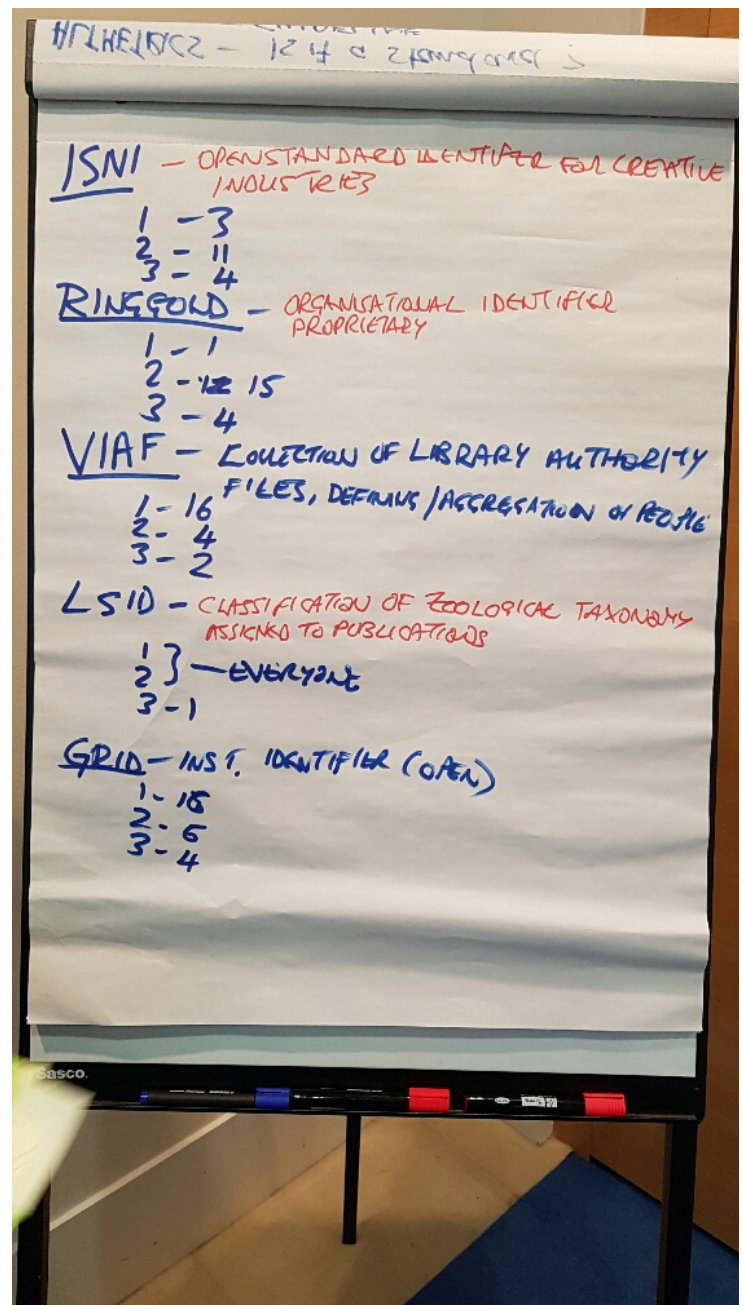 ALTMETRICS - IS IT a standard ?
ISNI - OPENSTANDARD IDENTIFIER FOR CREATIVE
INDUSTRIES
1 - 3
2 - 11
3 - 4
RINGGOLD - ORGANISATIONAL IDENTIFIER
PROPRIETARY
1 - 1
2 - 15
3 - 4
VIAF - COLLECTION OF LIBRARY AUTHORITY
FILES, DEFINING / AGGREGATION OF PEOPLE
1 - 16
2 - 4
3 - 2
LSID - CLASSIFICATION OF ZOOLOGICAL TAXONOMY
ASSIGNED TO PUBLICATIONS
1
2 } - EVERYONE
3 - 1
GRID - INST. IDENTIFIER (OPEN)
1 - 18
2 - 6
3 - 4
Sasco.